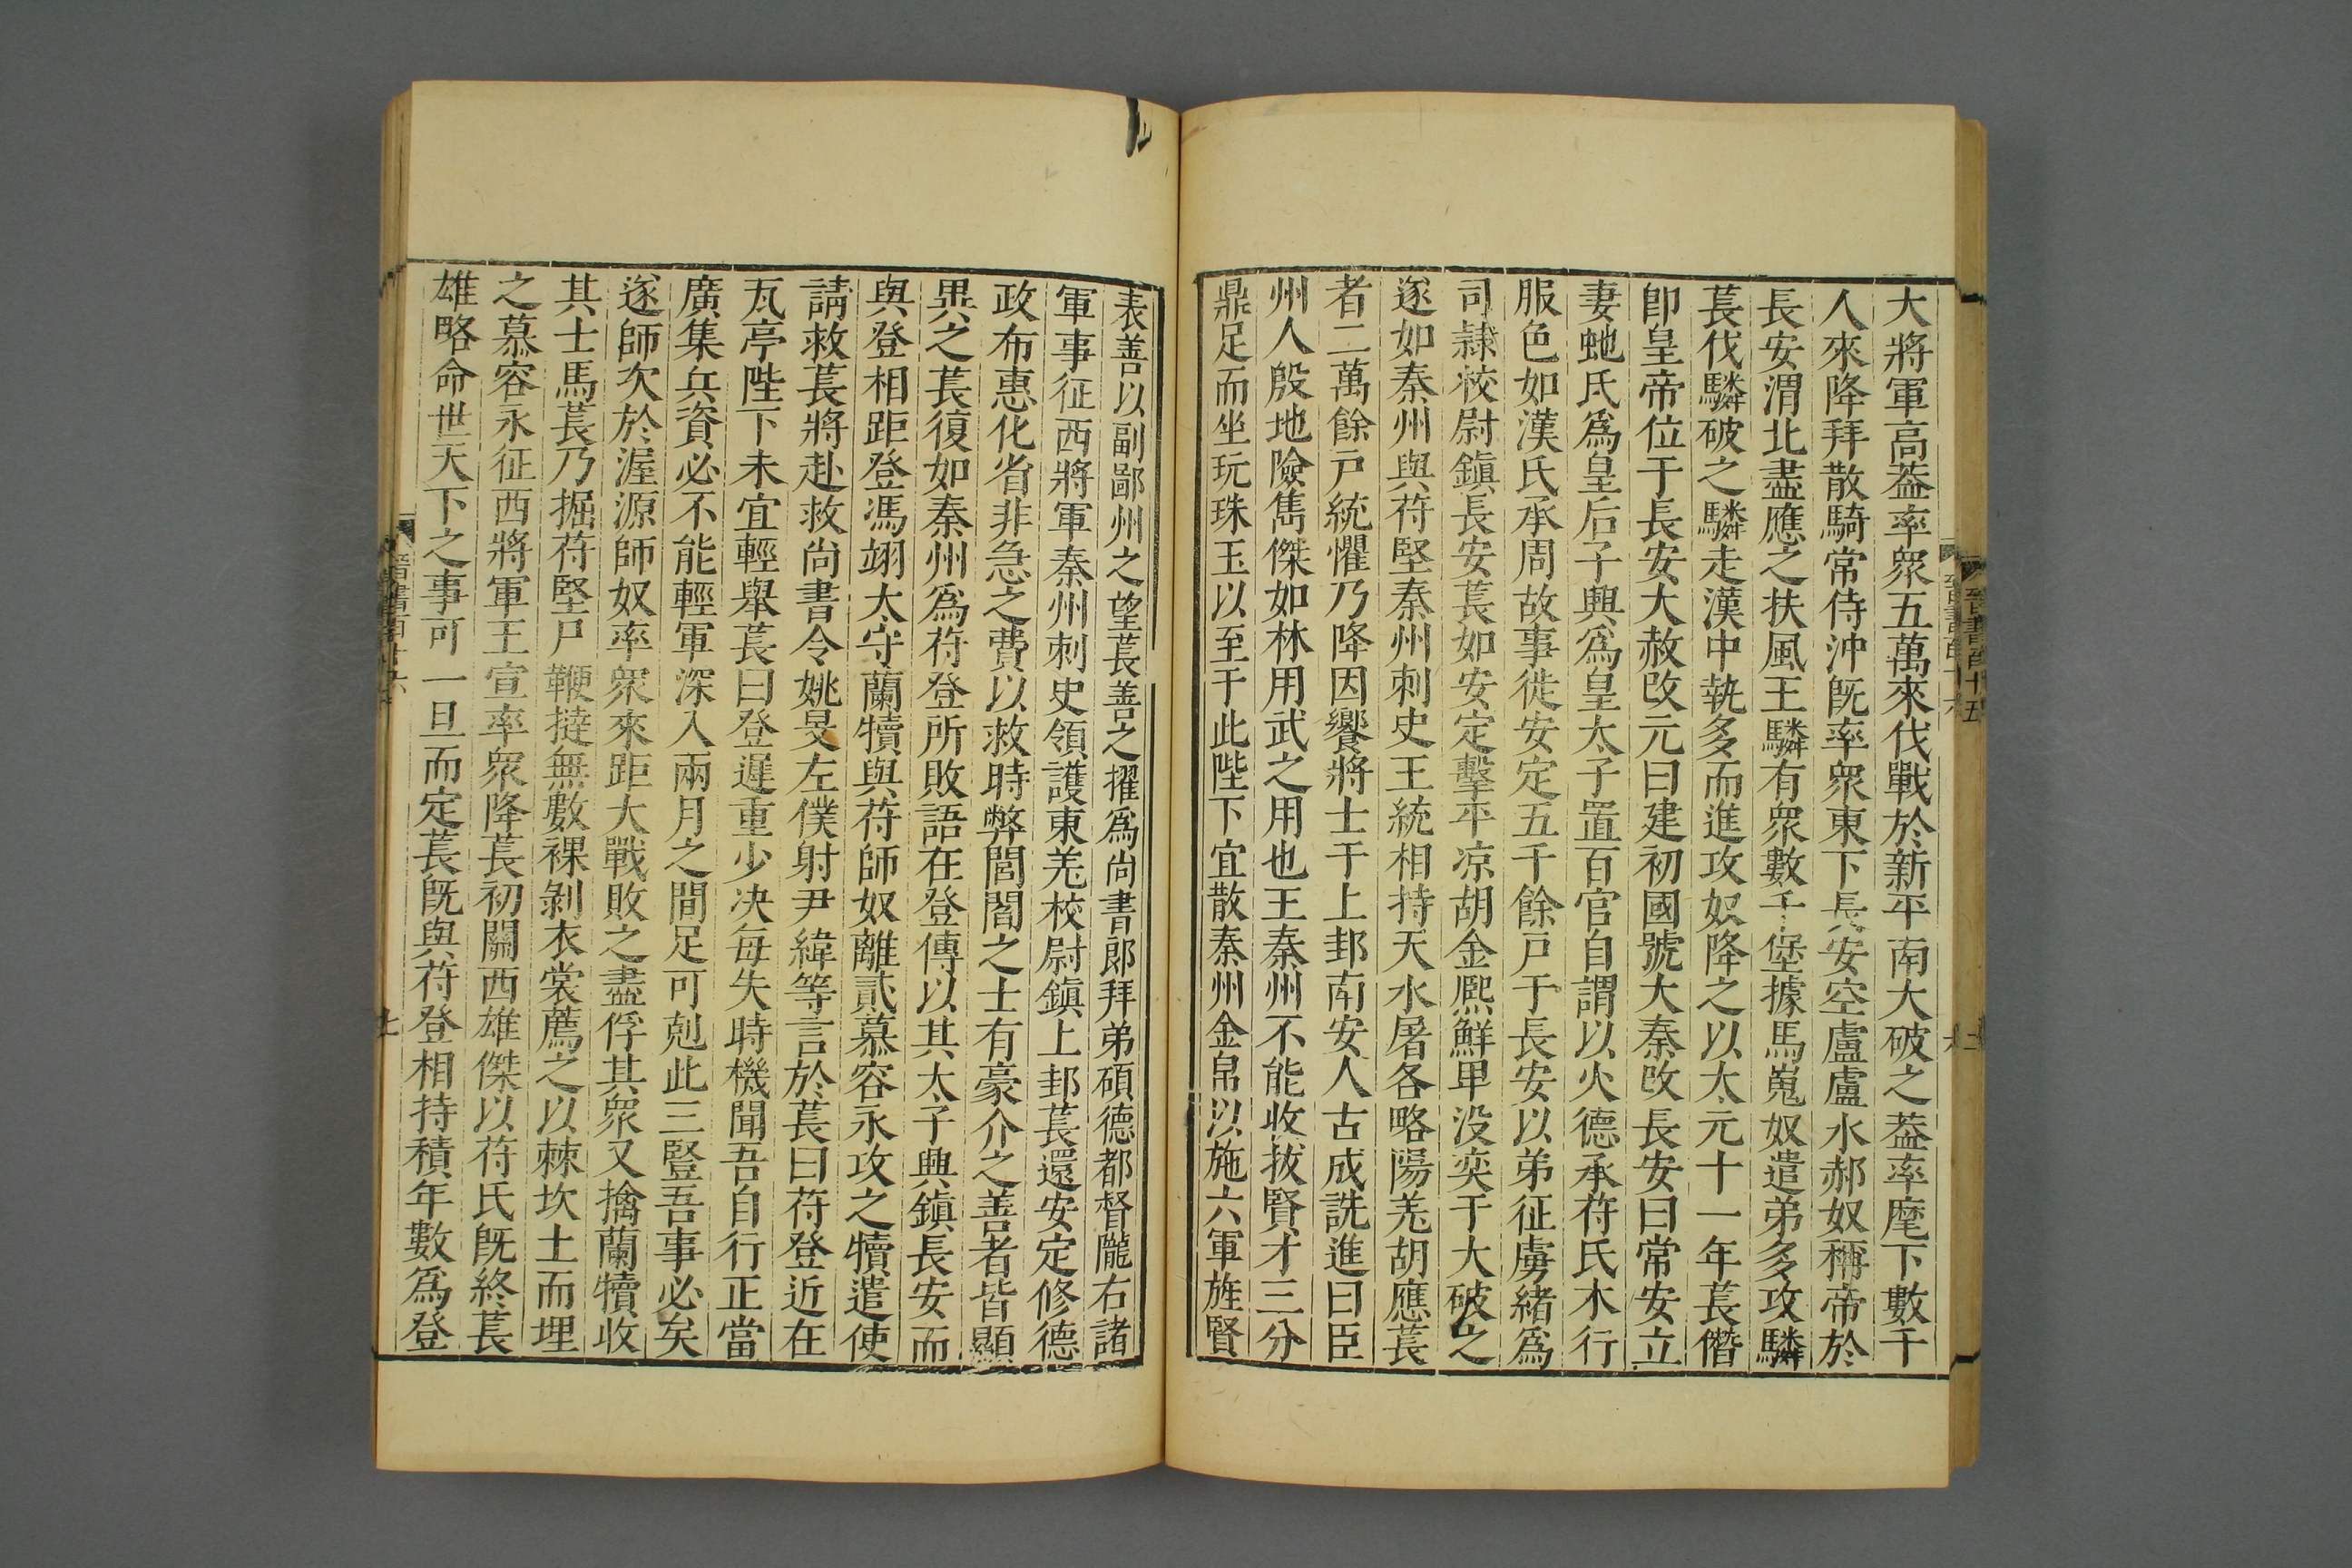 大將軍高葢率衆五萬來伐戰於新平南大破之葢率麾下數千
人來降拜散騎常侍沖旣率衆東下長安空盧盧水郝奴稱帝於
長安渭北盡應之扶風王驎有衆數千堡據馬嵬奴遣弟多攻驎
萇伐驎破之驎走漢中執多而進攻奴降之以太元十一年萇僭
卽皇帝位于長安大赦改元曰建初國號大秦改長安曰常安立
妻虵氏爲皇后子興爲皇太子置百官自謂以火德承苻氏木行
服色如漢氏承周故事徙安定五千餘戸于長安以弟征虜緒爲
司隷校尉鎭長安萇如安定擊平凉胡金熈鮮卑没奕于大破之
遂如秦州與苻堅秦州刺史王統相持天水屠各略陽羌胡應萇
者二萬餘戸統懼乃降因饗將士于上邽南安人古成詵進曰臣
州人殷地險雋傑如林用武之用也王秦州不能收拔賢才三分
鼎足而坐玩珠玉以至于此陛下宜散秦州金帛以施六軍旌賢
表善以副鄙州之望萇善之擢爲尚書郎拜弟碩德都督隴右諸
軍事征西將軍秦州刺史領護東羌校尉鎭上邽萇還安定修德
政布惠化省非急之費以救時弊閭閻之士有豪介之善者皆顯
異之萇復如秦州爲苻登所敗語在登傳以其太子興鎭長安而
與登相距登馮翊太守蘭犢與苻師奴離貳慕容永攻之犢遣使
請救萇將赴救尚書令姚旻左僕射尹緯等言於萇曰苻登近在
瓦亭陛下未宜輕舉萇曰登遲重少决每失時機聞吾自行正當
廣集兵資必不能輕軍深入兩月之間足可剋此三豎吾事必矣
遂師次於渥源師奴率衆來距大戰敗之盡俘其衆又擒蘭犢收
其士馬萇乃掘苻堅尸鞭撻無數裸剝衣裳薦之以棘坎土而埋
之慕容永征西將軍王宣率衆降萇初關西雄傑以苻氏旣終萇
雄略命世天下之事可一旦而定萇旣與苻登相持積年數爲登